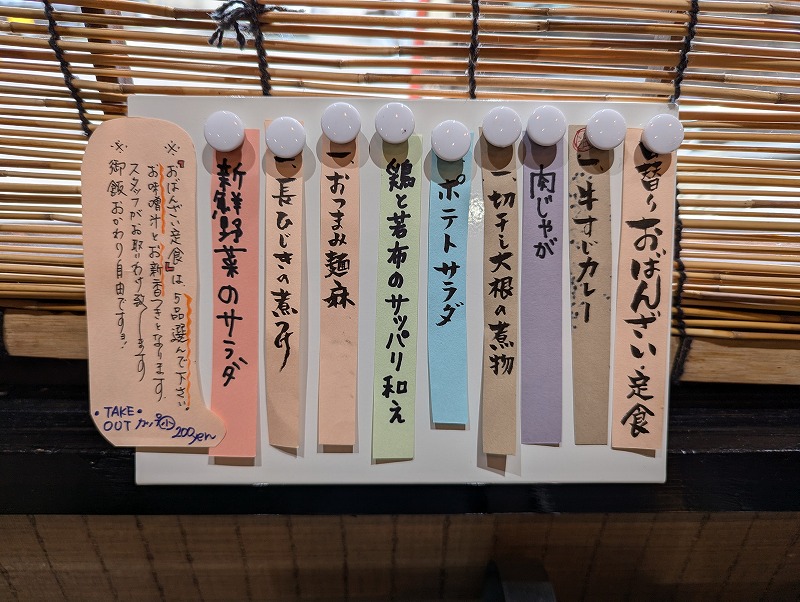 日替りおばんざい定食
一、牛すじカレー
肉じゃが
一、切干し大根の煮物
ポテトサラダ
鶏と若布のサッパリ和え
一、おつまみ麺麻
一、長ひじきの煮つけ
新鮮野菜のサラダ
※『おばんざい定食』は、5品選んで下さい。
お味噌汁とお新香つきとなります。
スタッフがお取りわけ致します
※御飯おかわり自由ですョ!
•TAKE•
OUT カップ小 200yen